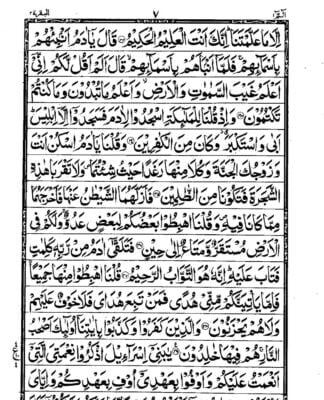 البقرة ٢
٧
الٓمّٓ ١
اِلَّا مَا عَلَّمْتَنَا اِنَّكَ اَنْتَ الْعَلِيْمُ الْحَكِيْمُ ۝ قَالَ يٰٓاٰدَمُ اَنْۢبِئْهُمْ
بِاَسْمَآئِهِمْ فَلَمَّآ اَنْۢبَاَهُمْ بِاَسْمَآئِهِمْ قَالَ اَلَمْ اَقُلْ لَّكُمْ اِنِّىْٓ
اَعْلَمُ غَيْبَ السَّمٰوٰتِ وَالْاَرْضِ وَاَعْلَمُ مَا تُبْدُوْنَ وَمَا كُنْتُمْ
تَكْتُمُوْنَ ۝ وَاِذْ قُلْنَا لِلْمَلٰٓئِكَةِ اسْجُدُوْا لِاٰدَمَ فَسَجَدُوْٓا اِلَّآ اِبْلِيْسَ
اَبٰى وَاسْتَكْبَرَ وَكَانَ مِنَ الْكٰفِرِيْنَ ۝ وَقُلْنَا يٰٓاٰدَمُ اسْكُنْ اَنْتَ
وَزَوْجُكَ الْجَنَّةَ وَكُلَا مِنْهَا رَغَدًا حَيْثُ شِئْتُمَا وَلَا تَقْرَبَا هٰذِهِ
الشَّجَرَةَ فَتَكُوْنَا مِنَ الظّٰلِمِيْنَ ۝ فَاَزَلَّهُمَا الشَّيْطٰنُ عَنْهَا فَاَخْرَجَهُمَا
مِمَّا كَانَا فِيْهِ وَقُلْنَا اهْبِطُوْا بَعْضُكُمْ لِبَعْضٍ عَدُوٌّ وَلَكُمْ فِى
الْاَرْضِ مُسْتَقَرٌّ وَّمَتَاعٌ اِلٰى حِيْنٍ ۝ فَتَلَقّٰٓى اٰدَمُ مِنْ رَّبِّهٖ كَلِمٰتٍ
فَتَابَ عَلَيْهِ اِنَّهٗ هُوَ التَّوَّابُ الرَّحِيْمُ ۝ قُلْنَا اهْبِطُوْا مِنْهَا جَمِيْعًا
فَاِمَّا يَاْتِيَنَّكُمْ مِّنِّىْ هُدًى فَمَنْ تَبِعَ هُدَاىَ فَلَا خَوْفٌ عَلَيْهِمْ
وَلَا هُمْ يَحْزَنُوْنَ ۝ وَالَّذِيْنَ كَفَرُوْا وَكَذَّبُوْا بِاٰيٰتِنَآ اُولٰٓئِكَ اَصْحٰبُ
النَّارِ هُمْ فِيْهَا خٰلِدُوْنَ ۝ يٰبَنِىْٓ اِسْرَآءِيْلَ اذْكُرُوْا نِعْمَتِىَ الَّتِىْٓ
اَنْعَمْتُ عَلَيْكُمْ وَاَوْفُوْا بِعَهْدِىْٓ اُوْفِ بِعَهْدِكُمْ وَاِيَّاىَ